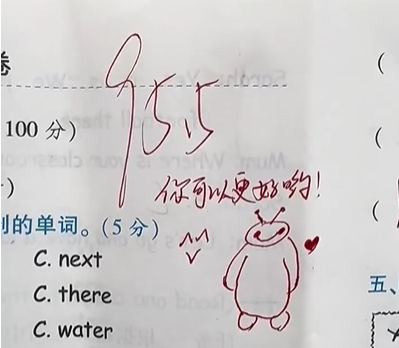 卷
95.5
100 分)
你可以更好哟!
)
的单词。(5 分)
C. next
C. there
五、
C. water